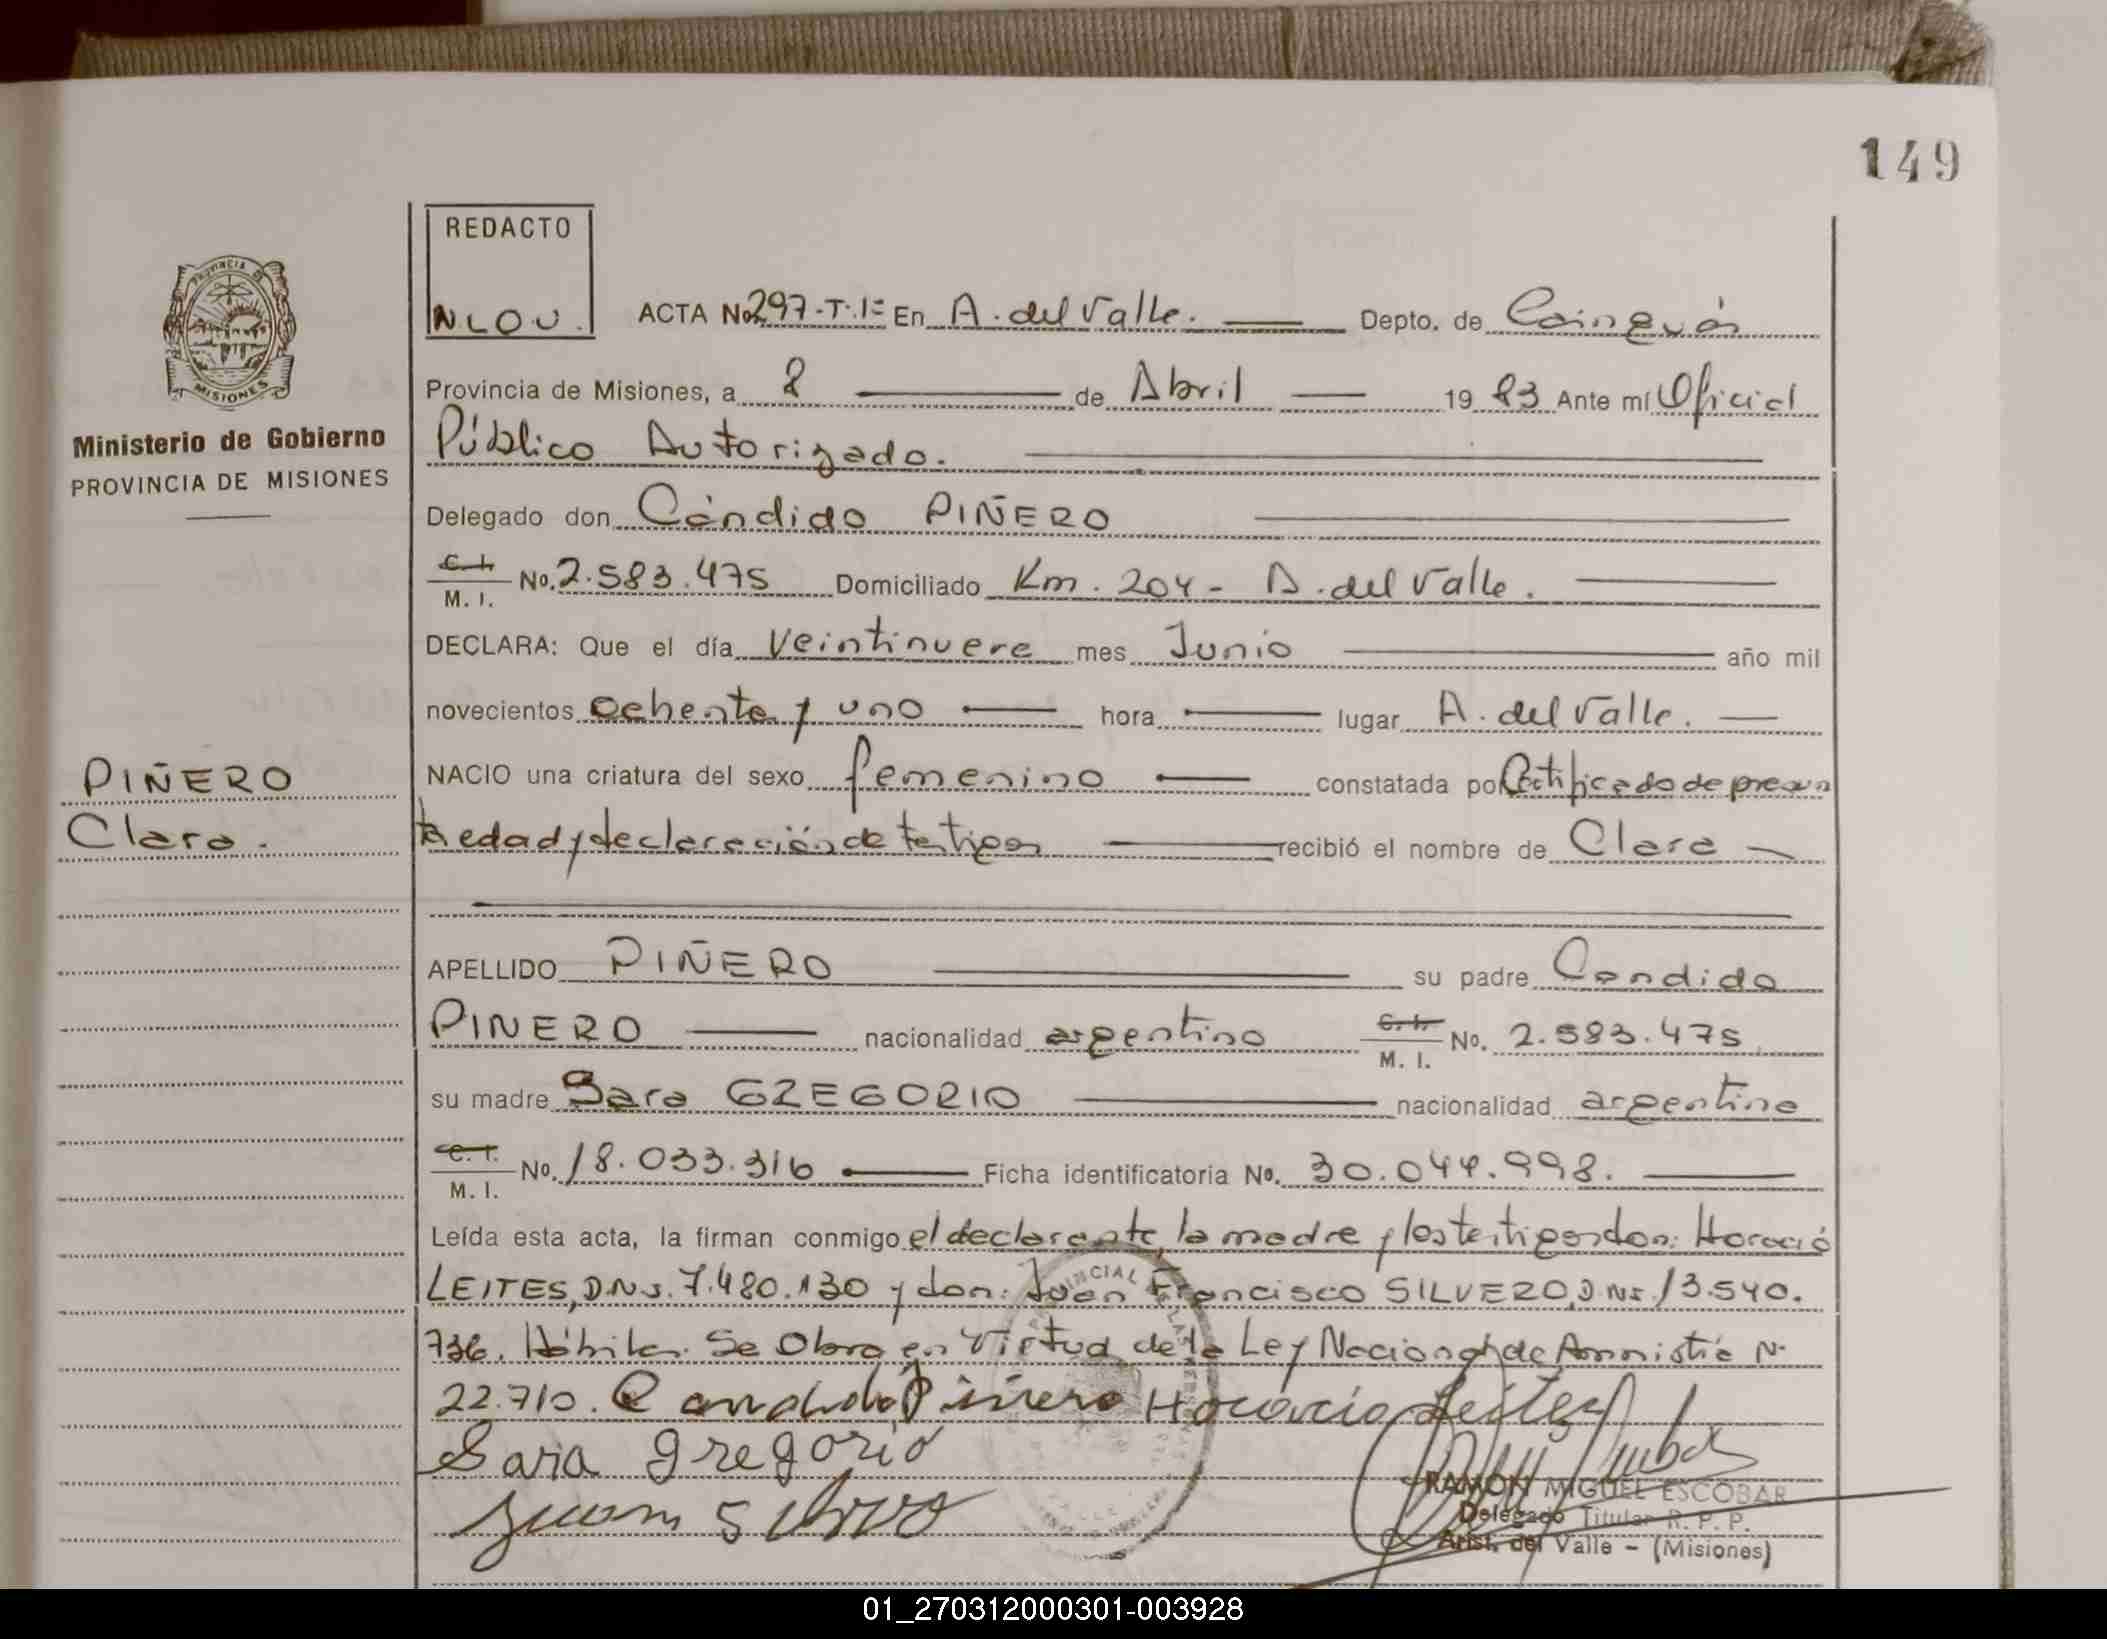 149
REDACTO
NLOU.
ACTA No 297-T.1= En A. del Valle. Depto. de Cainguás
Provincia de Misiones, a 8 de Abril 1983 Ante mí Oficial
Público Autorizado.
PROVINCIA DE MISIONES
Ministerio de Gobierno
PROVINCIA DE MISIONES
Delegado don Cándido PIÑERO
C. I. M. I. No. 2.583.475 Domiciliado Km. 204 - A. del Valle.
DECLARA: Que el día Veintinueve mes Junio año mil
novecientos ochenta y uno hora lugar A. del Valle.
PIÑERO
Clara.
NACIO una criatura del sexo femenino constatada por Certificado de presun
ta edad y declaración de testigos recibió el nombre de Clara
APELLIDO PIÑERO su padre Candido
PINERO nacionalidad argentino C. I. M. I. No. 2.583.475
su madre Sara GREGORIO nacionalidad argentina
C. I. M. I. No. 18.033.316 Ficha identificatoria No. 30.044.998.
Leída esta acta, la firman conmigo el declarante, la madre y los testigos don: Horacio
LEITES, DNJ. 7.480.130 y don: Juan Francisco SILVERO, DNI. 13.540.
736. Hábiles. Se Obra en Virtud de la Ley Nacional de Amnistía N·
22.710. Candido Piñero Horacio Leites
Sara gregorio
Juan Silvero
RAMON MIGUEL ESCOBAR
Delegado Titular R. P. P.
Arist. del Valle - (Misiones)
01_270312000301-003928